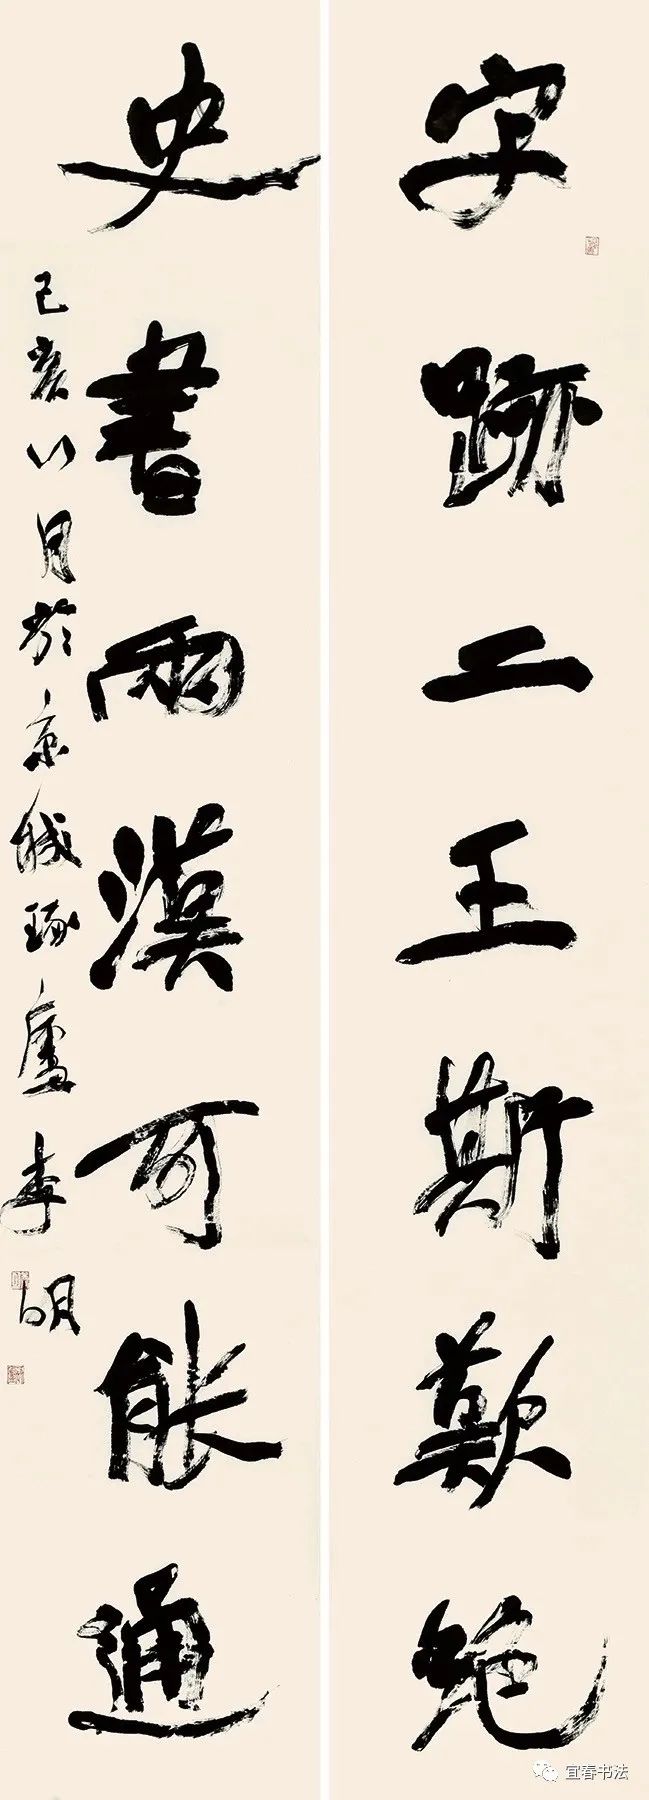 字跡二王斯歎絶
史書兩漢可能通
己亥八月於京城琢廬李明
宜春书法